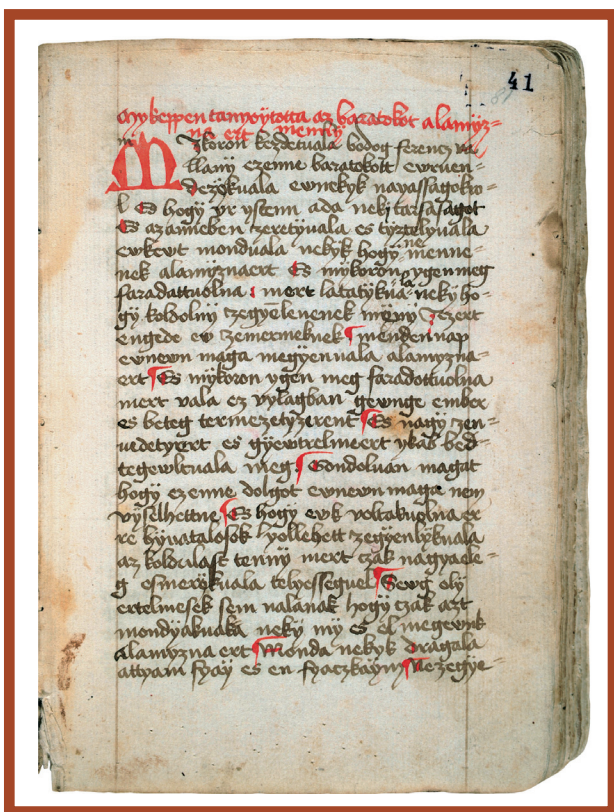 41
Mykeppen tanoytotta az baratokot alamyz=
na ert mennÿ
Mÿkoron kezdetuala bodog ferencz va
llanÿ ezenne baratokott ewruen
dezÿkuala ewnekÿk nauassagokro
l Es hogÿ vr ÿstenn ada neki tarsasagot
Es azanneben zeretÿuala es tÿztelÿuala
ewkewt monduala nekÿk hogÿ ne menne=
nek alamÿznaert Es mÿkoron ÿgen meg
faradattuolna mert latatÿkuala nekÿ ho=
gÿ koldolnÿ zegÿelenenek
engede ew zemermeknek menden nap
ewnewn maga megÿenuala alamÿzna=
ert Es mÿkoron ÿgen meg faradottuolna
mert vala ez vÿlagban gewnge ember
es beteg termezetÿzerent Es nagÿ zen=
uedetÿert es gÿewtrelmeert ÿkab bed=
tegewltuala meg Gondoluan magat
hogÿ ezenne dolgot ewnewn maga nem
vÿselhettne Es hogÿ ewk voltakuolna er
re hÿuatalosok ÿollehett zegÿenlÿkuala
az koldulast tennÿ mert czak nagÿaele=
g esmerÿkuala telÿesseguel Sewg olÿ
ertelmesek sem valanak hogÿ czak azt
mondÿakuala nekÿ mÿ es el megewnk
alamÿzna ert Monda nekÿk dragala
attÿam fÿaÿ es en fÿaczkaÿm Ne zegÿe=